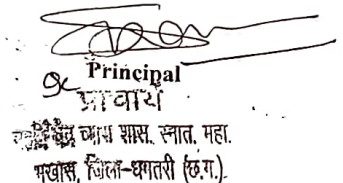 Principal
प्राचार्य
चन्द्र व्यास शास. स्नात. महा.
भखारा, जिला-धमतरी (छ.ग.)